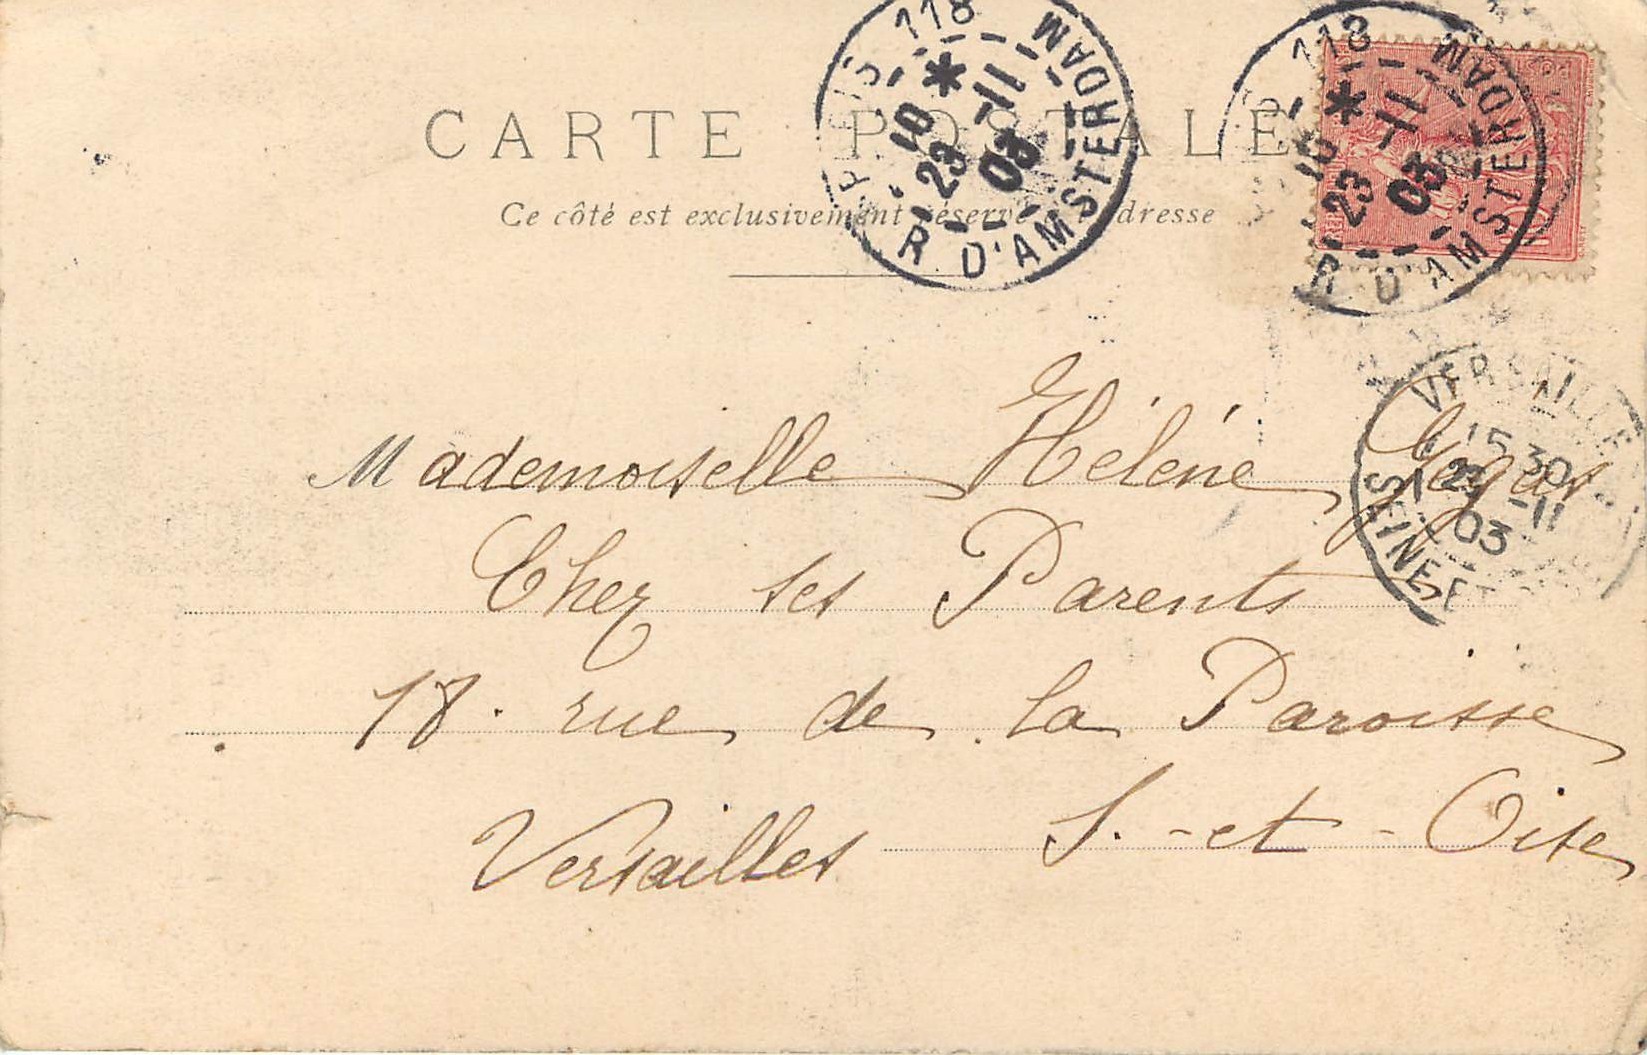 CARTE POSTALE
Ce côté est exclusivement réservé à l'adresse
PARIS 118
R. D'AMSTERDAM
10 *
23 -11
03
118
R. D'AMSTERDAM
10 *
23 -11
03
VERSAILLES
15 30
23 -11
03
SEINE ET
Mademoiselle Hélène
Chez ses Parents
18. rue de la Paroisse
Versailles S.-et-Oise